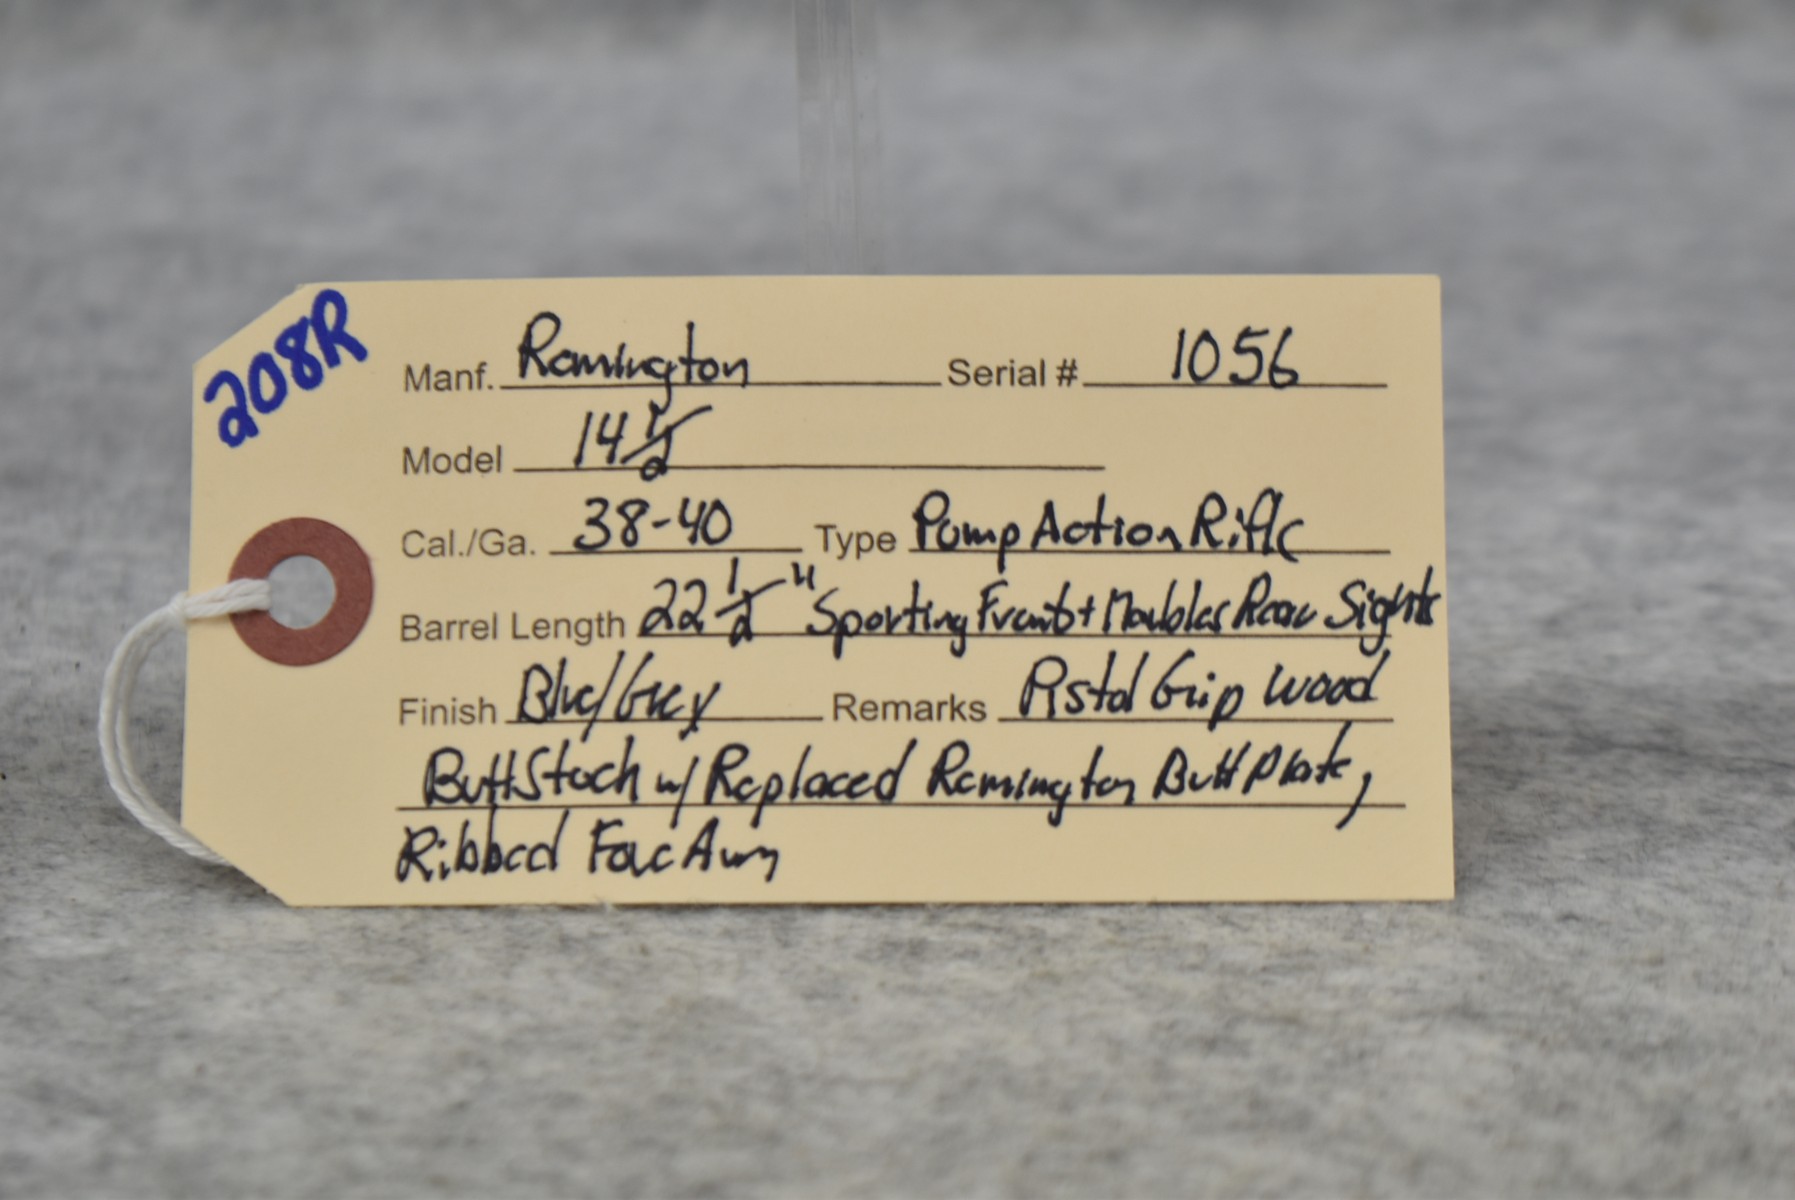 208R
Manf. Remington Serial # 1056
Model 14 1/2
Cal./Ga. 38-40 Type Pump Action Rifle
Barrel Length 22 1/2" Sporting Front + Marbles Rear Sights
Finish Blue/Grey Remarks Pistol Grip Wood
Butt Stock w/ Replaced Remington Butt Plate,
Ribbed ForeArm